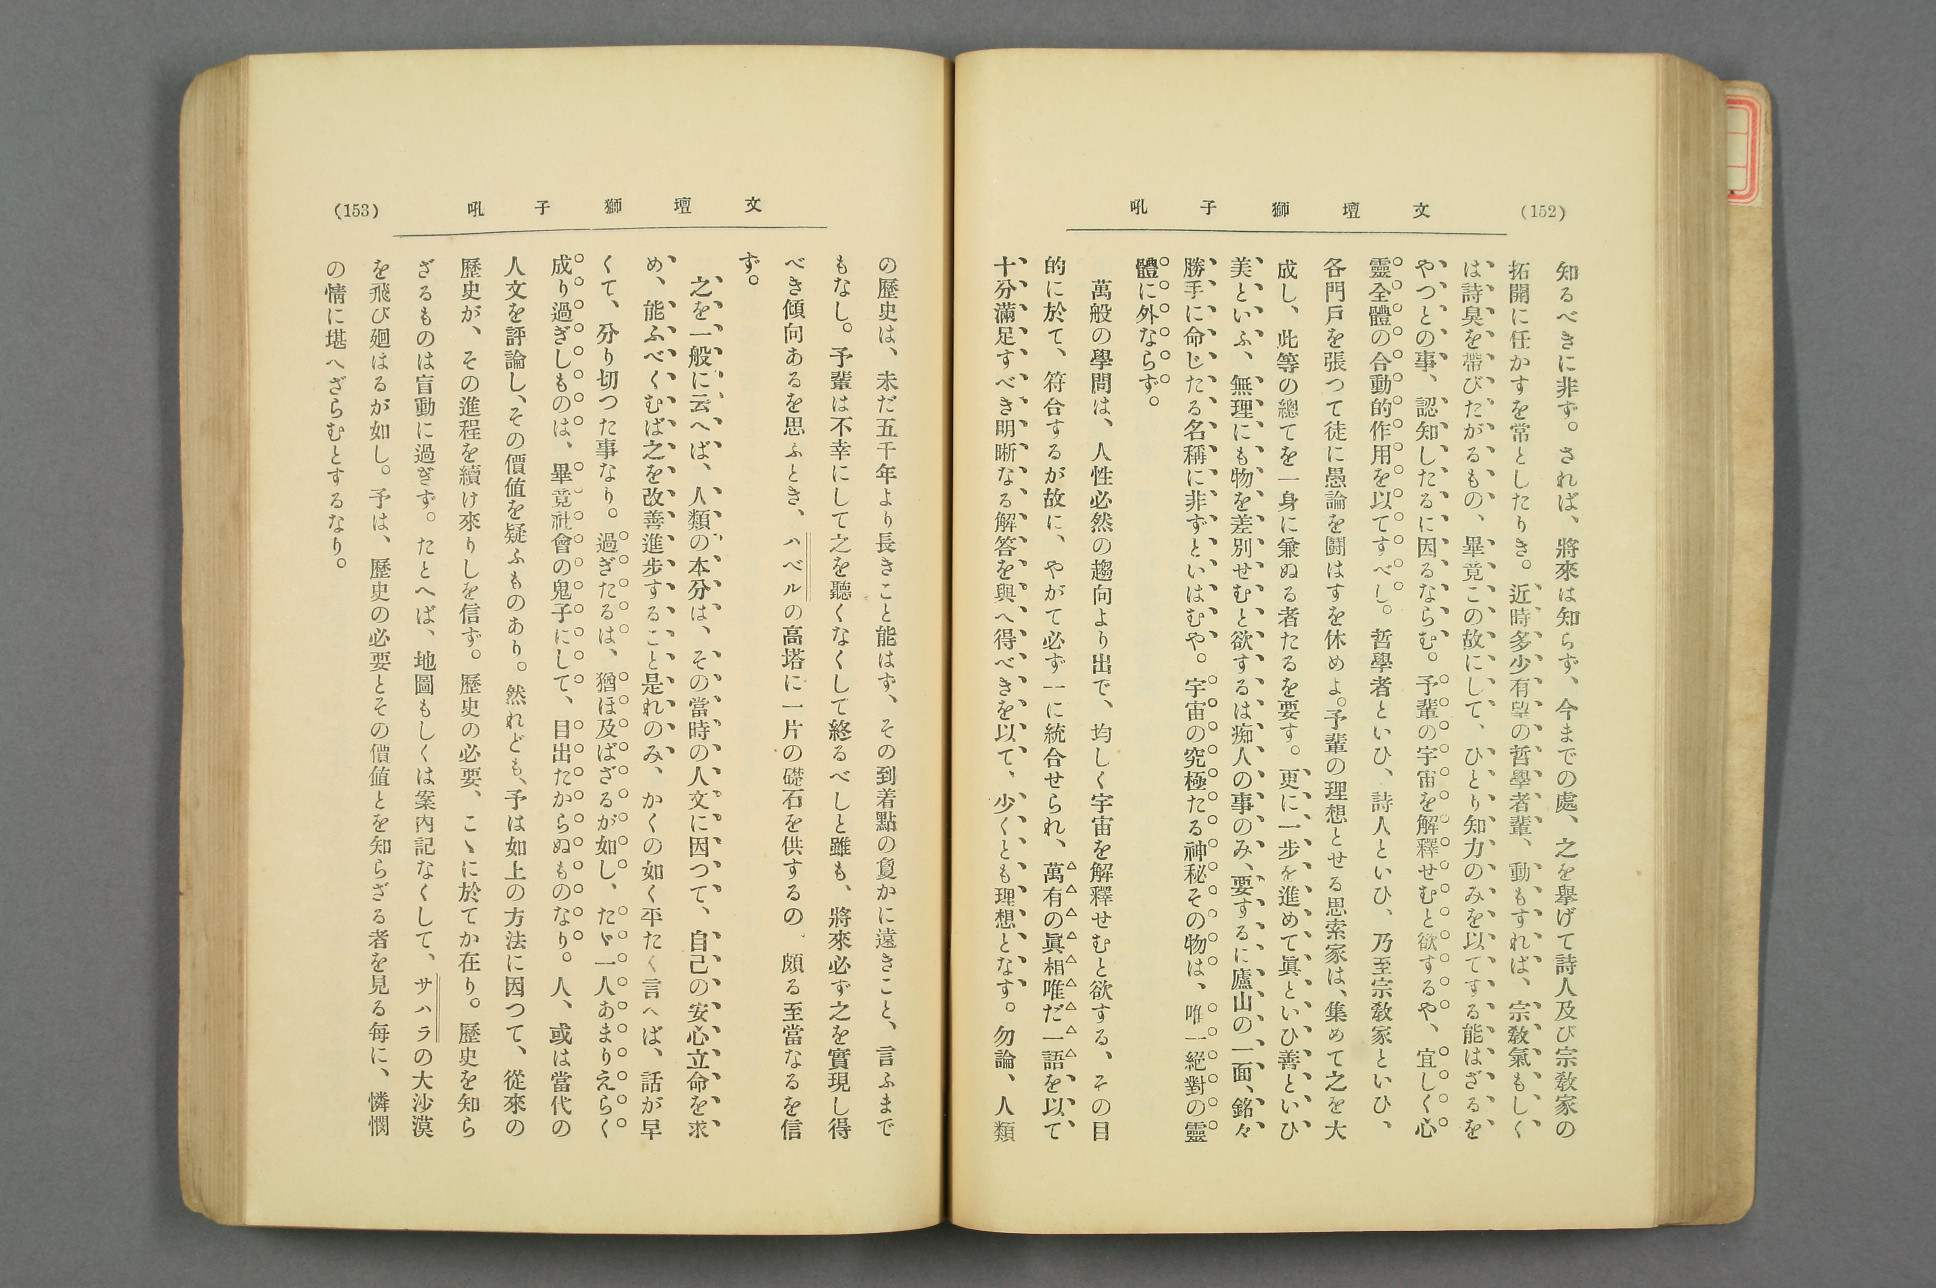 (152)
文壇獅子吼
知るべきに非ず。されば、將來は知らず、今までの處、之を擧げて詩人及び宗敎家の
拓開に任かすを常としたりき。近時多少有望の哲學者輩、動もすれば、宗敎氣もしく
は詩臭を帶びたがるもの、畢竟この故にして、ひとり知力のみを以てする能はざるを
やつとの事、認知したるに因るならむ。予輩の宇宙を解釋せむと欲するや、宜しく心
靈全體の合動的作用を以てすべし。哲學者といひ、詩人といひ、乃至宗敎家といひ、
各門戶を張つて徒に愚論を鬪はすを休めよ。予輩の理想とせる思索家は、集めて之を大
成し、此等の總てを一身に兼ぬる者たるを要す。更に一步を進めて眞といひ善といひ
美といふ、無理にも物を差別せむと欲するは痴人の事のみ、要するに廬山の一面、銘々
勝手に命じたる名稱に非ずといはむや。宇宙の究極たる神秘その物は、唯一絕對の靈
體に外ならず。
萬般の學問は、人性必然の趨向より出で、均しく宇宙を解釋せむと欲する、その目
的に於て、符合するが故に、やがて必ず一に統合せられ、萬有の眞相唯だ一語を以て
十分滿足すべき明晰なる解答を與へ得べきを以て、少くとも理想となす。勿論、人類
(153)
文壇獅子吼
の歷史は、未だ五千年より長きこと能はず、その到着點の敻かに遠きこと、言ふまで
もなし。予輩は不幸にして之を聽くなくして終るべしと雖も、將來必ず之を實現し得
べき傾向あるを思ふとき、ハベルの高塔に一片の礎石を供するの、頗る至當なるを信
ず。
之を一般に云へば、人類の本分は、その當時の人文に因つて、自己の安心立命を求
め、能ふべくむば之を改善進步すること是れのみ、かくの如く平たく言へば、話が早
くて、分り切つた事なり。過ぎたるは、猶ほ及ばざるが如し、たゞ一人あまりえらく
成り過ぎしものは、畢竟社會の鬼子にして、目出たからぬものなり。人、或は當代の
人文を評論し、その價値を疑ふものあり。然れども、予は如上の方法に因つて、從來の
歷史が、その進程を續け來りしを信ず。歷史の必要、こゝに於てか在り。歷史を知ら
ざるものは盲動に過ぎず。たとへば、地圖もしくは案內記なくして、サハラの大沙漠
を飛び廻はるが如し。予は、歷史の必要とその價値とを知らざる者を見る每に、憐憫
の情に堪へざらむとするなり。